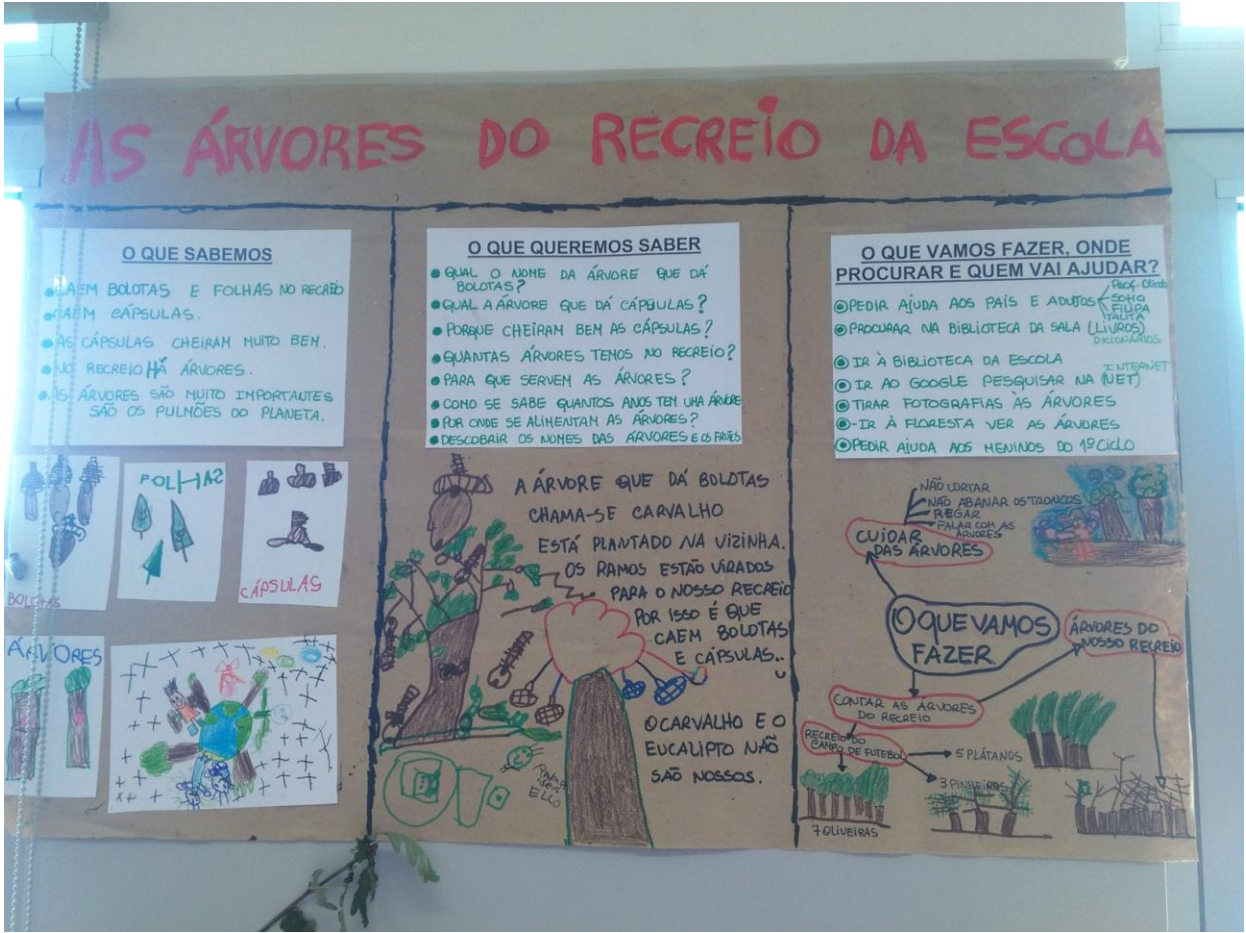 AS ÁRVORES DO RECREIO DA ESCOLA
O QUE SABEMOS
CAEM BOLOTAS E FOLHAS NO RECREIO
CAEM CÁPSULAS.
AS CÁPSULAS CHEIRAM MUITO BEM.
NO RECREIO HÁ ÁRVORES.
AS ÁRVORES SÃO MUITO IMPORTANTES
SÃO OS PULMÕES DO PLANETA.
BOLOTAS
FOLHAS
CÁPSULAS
ÁRVORES
O QUE QUEREMOS SABER
QUAL O NOME DA ÁRVORE QUE DÁ
BOLOTAS?
QUAL A ÁRVORE QUE DÁ CÁPSULAS?
PORQUE CHEIRAM BEM AS CÁPSULAS?
QUANTAS ÁRVORES TEMOS NO RECREIO?
PARA QUE SERVEM AS ÁRVORES?
COMO SE SABE QUANTOS ANOS TEM UMA ÁRVORE
POR ONDE SE ALIMENTAM AS ÁRVORES?
DESCOBRIR OS NOMES DAS ÁRVORES E OS FRUTOS
A ÁRVORE QUE DÁ BOLOTAS
CHAMA-SE CARVALHO
ESTÁ PLANTADO NA VIZINHA.
OS RAMOS ESTÃO VIRADOS
PARA O NOSSO RECREIO
POR ISSO É QUE
CAEM BOLOTAS
E CÁPSULAS..
O CARVALHO E O
EUCALIPTO NÃO
SÃO NOSSOS.
O QUE VAMOS FAZER, ONDE
PROCURAR E QUEM VAI AJUDAR?
PEDIR AJUDA AOS PAÍS E ADULTOS
Prof.
SOFIA
FILIPA
TALITA
PROCURAR NA BIBLIOTECA DA SALA (LIVROS)
DICIONÁRIOS
IR À BIBLIOTECA DA ESCOLA
INTERNET
IR AO GOOGLE PESQUISAR NA (NET)
TIRAR FOTOGRAFIAS ÀS ÁRVORES
-IR À FLORESTA VER AS ÁRVORES
PEDIR AJUDA AOS MENINOS DO 1º CICLO
NÃO CORTAR
NÃO ABANAR OS TRONCOS
REGAR
FALAR COM AS
ÁRVORES
CUIDAR
DAS ÁRVORES
O QUE VAMOS
FAZER
ÁRVORES DO
NOSSO RECREIO
CONTAR AS ÁRVORES
DO RECREIO
RECREIO DO
CAMPO DE FUTEBOL
5 PLÁTANOS
3 PINHEIROS
7 OLIVEIRAS